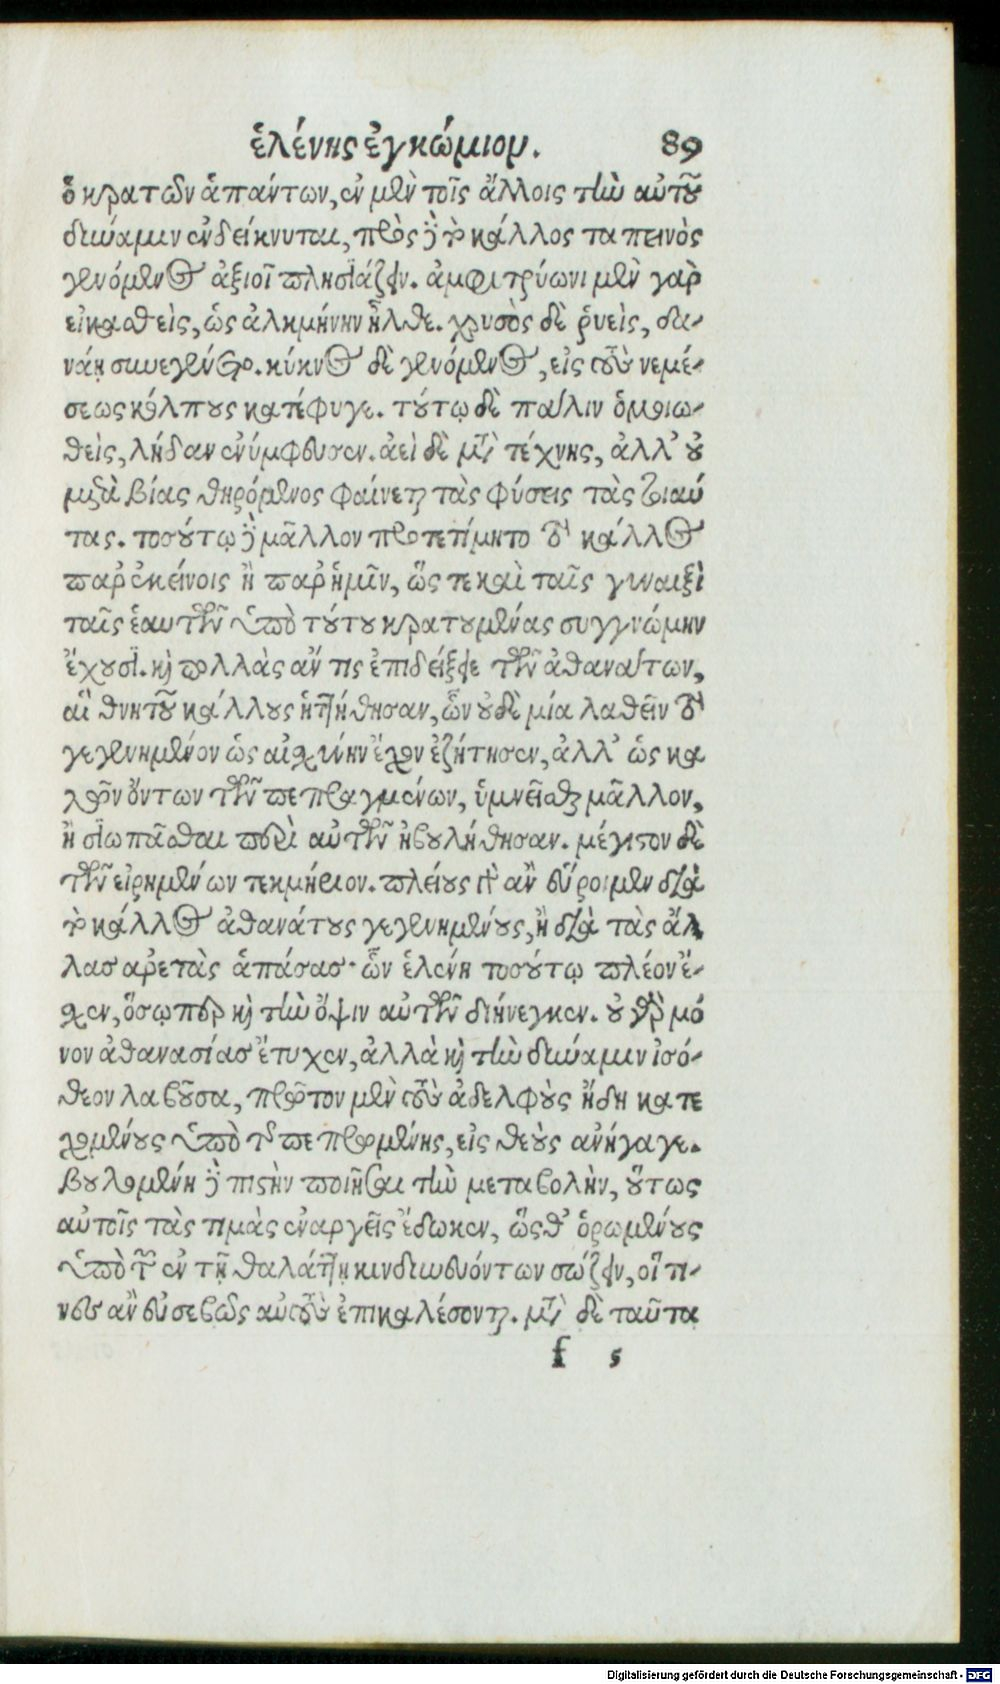 ἑλένης ἐγκώμιον. 89
ὁ κρατῶν ἁπάντων, ἐν μὲν τοῖς ἄλλοις τὴν αὐτοῦ
δύναμιν ἐνδείκνυται, πρὸς δὲ τὸ κάλλος ταπεινὸς
γενόμενος ἀξιοῖ πλησιάζειν. ἀμφιτρύωνι μὲν γὰρ
εἰκασθεὶς, ὡς ἀλκμήνην ἦλθε. χρυσὸς δὲ ῥυεὶς, δα-
νάῃ συνεγένετο. κύκνος δὲ γενόμενος, εἰς τοὺς νεμέ-
σεως κόλπους κατέφυγε. τούτῳ δὲ πάλιν ὁμοιω-
θεὶς, λήδαν ἐνύμφευσεν. ἀεὶ δὲ μετὰ τέχνης, ἀλλ' οὐ
μετὰ βίας θηρώμενος φαίνεται τὰς φύσεις τὰς τοιαύ
τας. τοσούτῳ δὲ μᾶλλον προτετίμητο τὸ κάλλος
παρ' ἐκείνοις ἢ παρ' ἡμῖν, ὥς τε καὶ ταῖς γυναιξὶ
ταῖς ἑαυτῶν ὑπὸ τούτου κρατουμένας συγγνώμην
ἔχουσι. καὶ πολλὰς ἄν τις ἐπιδείξειε τῶν ἀθανάτων,
αἳ θνητοῦ κάλλους ἡττήθησαν, ὧν οὐδὲ μία λαθεῖν τὸ
γεγενημένον ὡς αἰσχύνην ἔχον ἐζήτησεν, ἀλλ' ὡς κα
λῶν ὄντων τῶν πεπραγμένων, ὑμνεῖσθαι μᾶλλον,
ἢ σιωπᾶσθαι περὶ αὐτῶν ἠβουλήθησαν. μέγιστον δὲ
τῶν εἰρημένων τεκμήριον. πλείους γὰρ ἂν εὕροιμεν διὰ
τὸ κάλλος ἀθανάτους γεγενημένους, ἢ διὰ τὰς ἄλ
λας ἀρετὰς ἁπάσας· ὧν ἑλένη τοσούτῳ πλέον ἔ-
σχεν, ὅσῳπερ καὶ τὴν ὄψιν αὐτῶν διήνεγκεν. οὐ γὰρ μό
νον ἀθανασίας ἔτυχεν, ἀλλὰ καὶ τὴν δύναμιν ἰσό-
θεον λαβοῦσα, πρῶτον μὲν τοὺς ἀδελφοὺς ἤδη κατε
χομένους ὑπὸ τῆς πεπρωμένης, εἰς θεοὺς ἀνήγαγε.
βουλομένη δὲ πιστὴν ποιῆσαι τὴν μεταβολὴν, οὕτως
αὐτοῖς τὰς τιμὰς ἐναργεῖς ἔδωκεν, ὥσθ' ὁρωμένους
ὑπὸ τῶν ἐν τῇ θαλάττῃ κινδυνευόντων σώζειν, οἵ τι-
νες ἂν εὐσεβῶς αὐτοὺς ἐπικαλέσονται. μετὰ δὲ ταῦτα
f 5
Digitalisierung gefördert durch die Deutsche Forschungsgemeinschaft - DFG